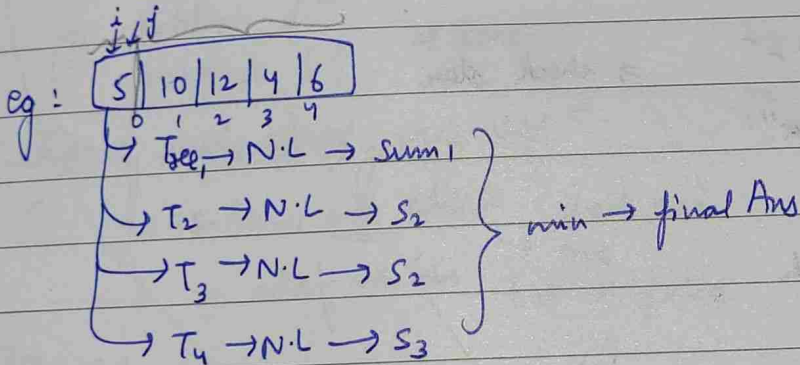 i j
eg : 5 | 10 | 12 | 4 | 6
0 1 2 3 4
→ Tree₁ → N.L → Sum₁
→ T₂ → N.L → S₂
→ T₃ → N.L → S₂
→ T₄ → N.L → S₃
min → final Ans